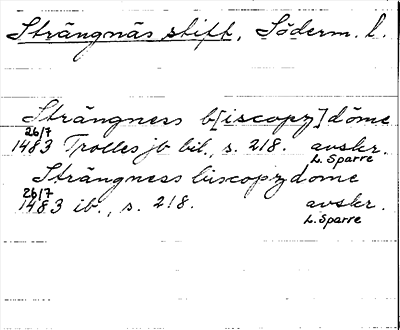 Strängnäs stift, Söderm. l.
Strängness b[iscopz]döme
26/7
1483 Trolles jb bil., s. 218. avskr.
L. Sparre
Strängness biscopzdome
26/7
1483 ib., s. 218. avskr.
L. Sparre